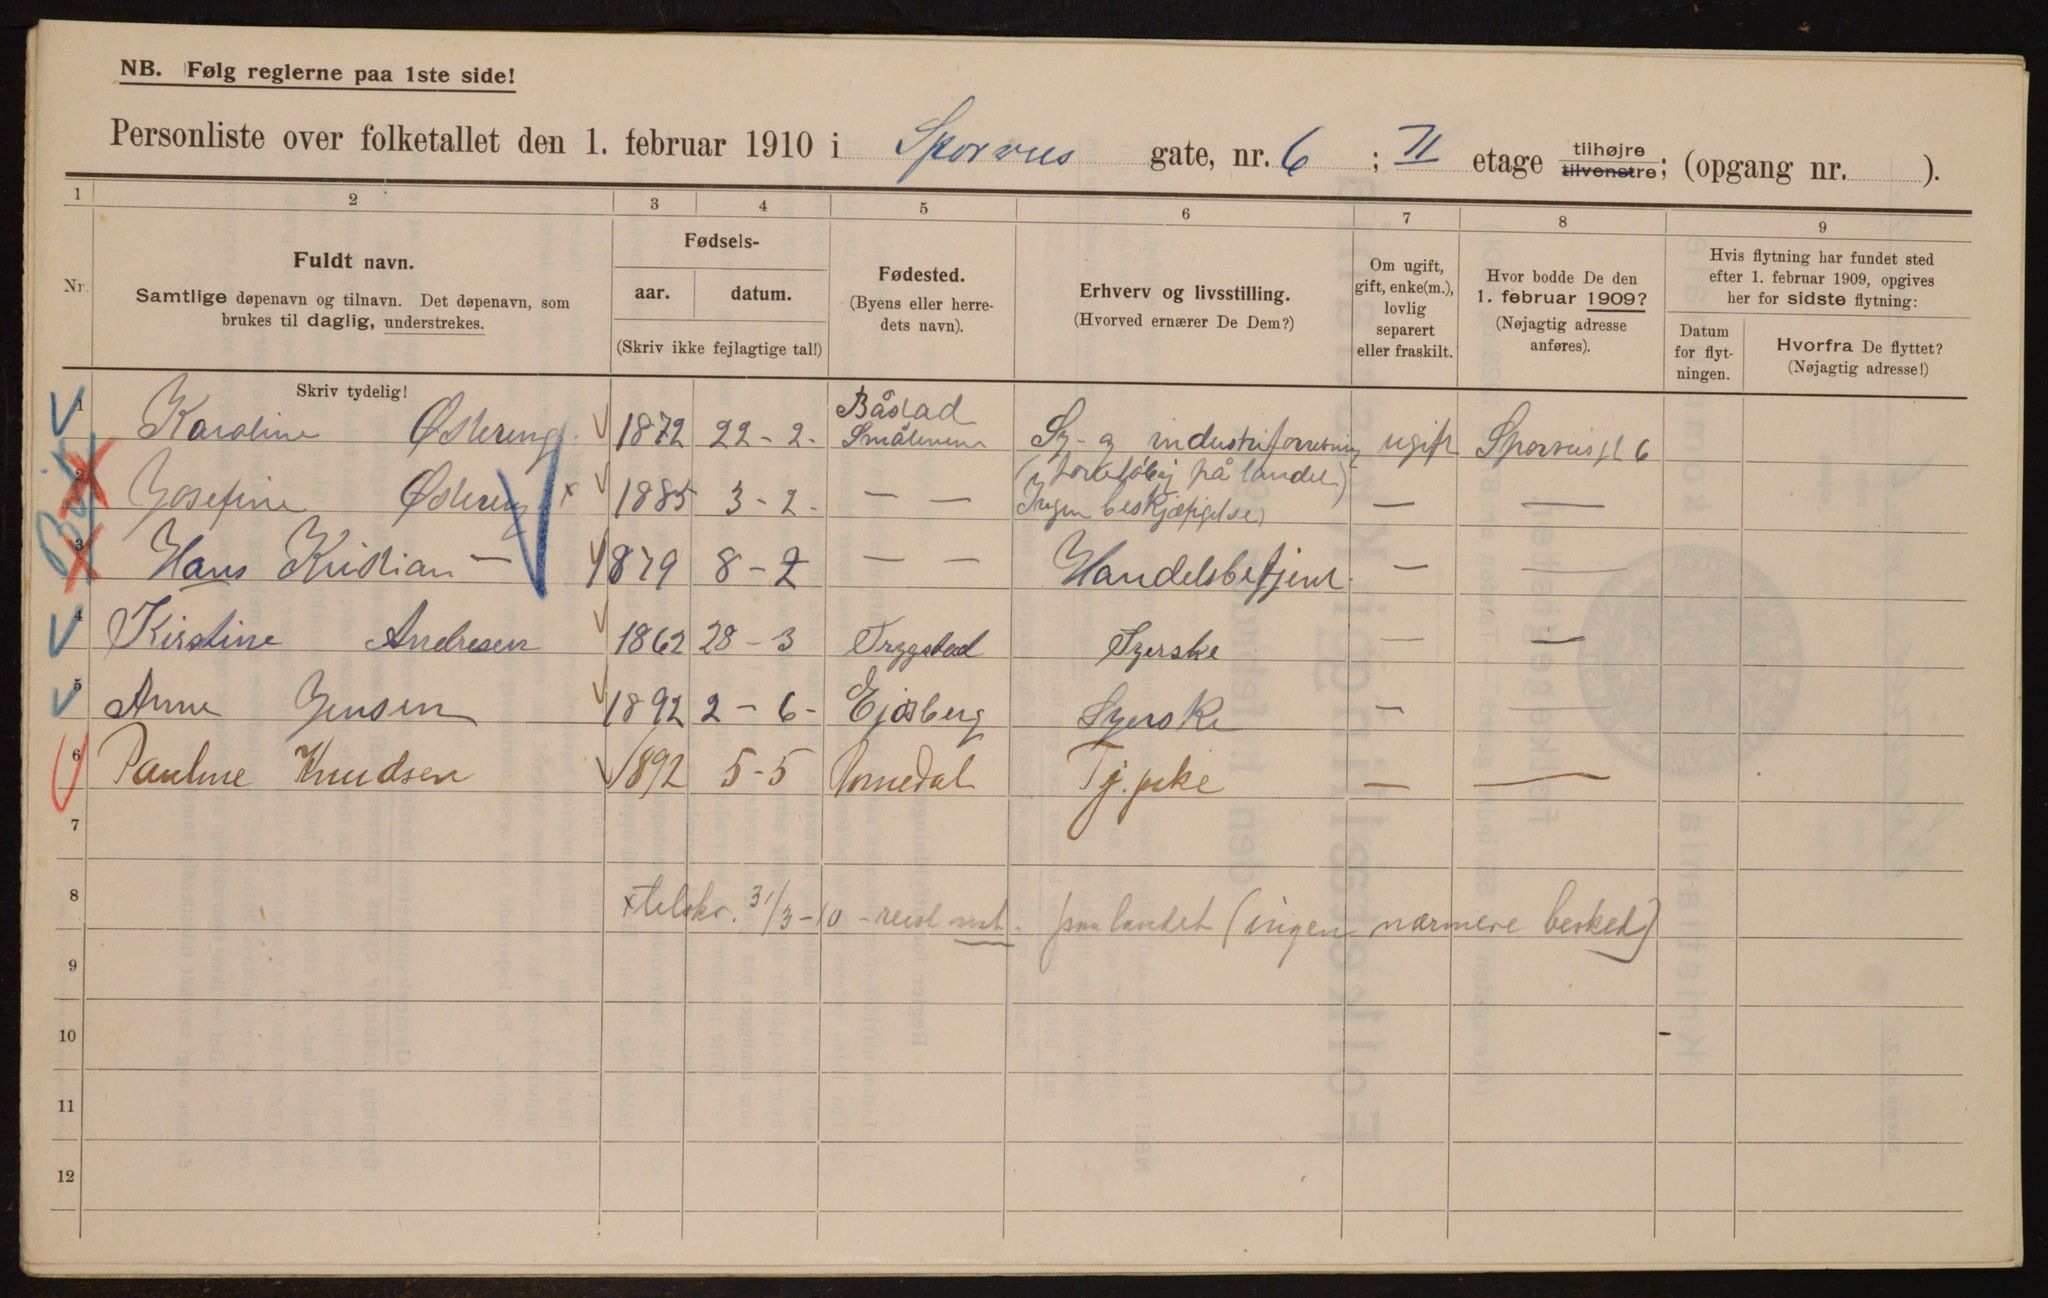 NB. Følg reglerne paa 1ste side!
Personliste over folketallet den 1. februar 1910 i Sporveis gate, nr. 6 ; II etage tilhøjre tilvenstre; (opgang nr. ).
1 2 3 4 5 6 7 8 9
Nr.
Fuldt navn.
Samtlige døpenavn og tilnavn. Det døpenavn, som
brukes til daglig, understrekes.
Fødsels-
aar. datum.
(Skriv ikke fejlagtige tal!)
Fødested.
(Byens eller herre-
dets navn).
Erhverv og livsstilling.
(Hvorved ernærer De Dem?)
Om ugift,
gift, enke(m.),
lovlig
separert
eller fraskilt.
Hvor bodde De den
1. februar 1909?
(Nøjagtig adresse
anføres).
Hvis flytning har fundet sted
efter 1. februar 1909, opgives
her for sidste flytning:
Datum
for flyt-
ningen.
Hvorfra De flyttet?
(Nøjagtig adresse!)
Skriv tydelig!
1 Karoline Østereng 1872 22-2- Båstad Smålenene Sy- og industriforretning ugift Sporveisgt 6
2 Josefine Østereng x 1885 3-2- — — (foreløbig på landet) Ingen beskjæftigelse) — —
3 Hans Kristian — 1879 8-2 — — Handelsbetjent — —
4 Kirstine Andresen 1862 28-3 Trygstad Syerske — —
5 Anne Jensen 1892 2-6- Ejdsberg Syerske — —
6 Pauline Knudsen 1892 5-5 Romedal Tj.pike — —
7
8 x telskr. 31/3-10 - reist paa landet (ingen nærmere besked)
9
10
11
12